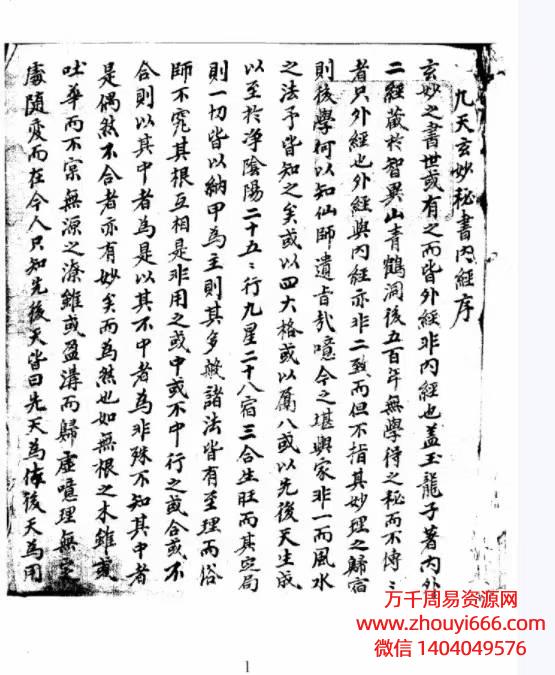 九天玄妙秘書內經序
玄妙之書世或有之而皆外經非內經也盖玉龍子著內外
二經藏於智異山青鶴洞後五百年無學得之秘而不傳
者只外經也外經與內經亦非二致而但不指其妙理之歸宿
則後學何以知仙師遺旨哉噫今之堪輿家非一而風水
之法予皆知之矣或以四大格或以屬八或以先後天生成
以至於净陰陽二十五行九星二十八宿三合生旺而其定局
則一切皆以納甲為主則其多般諸法皆有至理而俗
師不究其根互相是非用之或中或不中行之或合或不
合則以其中者為是以其不中者為非殊不知其中者
是偶然不合者亦有妙矣而為然也如無根之木雖或
吐華而不實無源之潦雖或盈溝而歸虛噫理無定
處隨爰而在今人只知先後天皆曰先天為体後天為用
万千周易资源网
www.zhouyi666.com
微信 1404049576
1